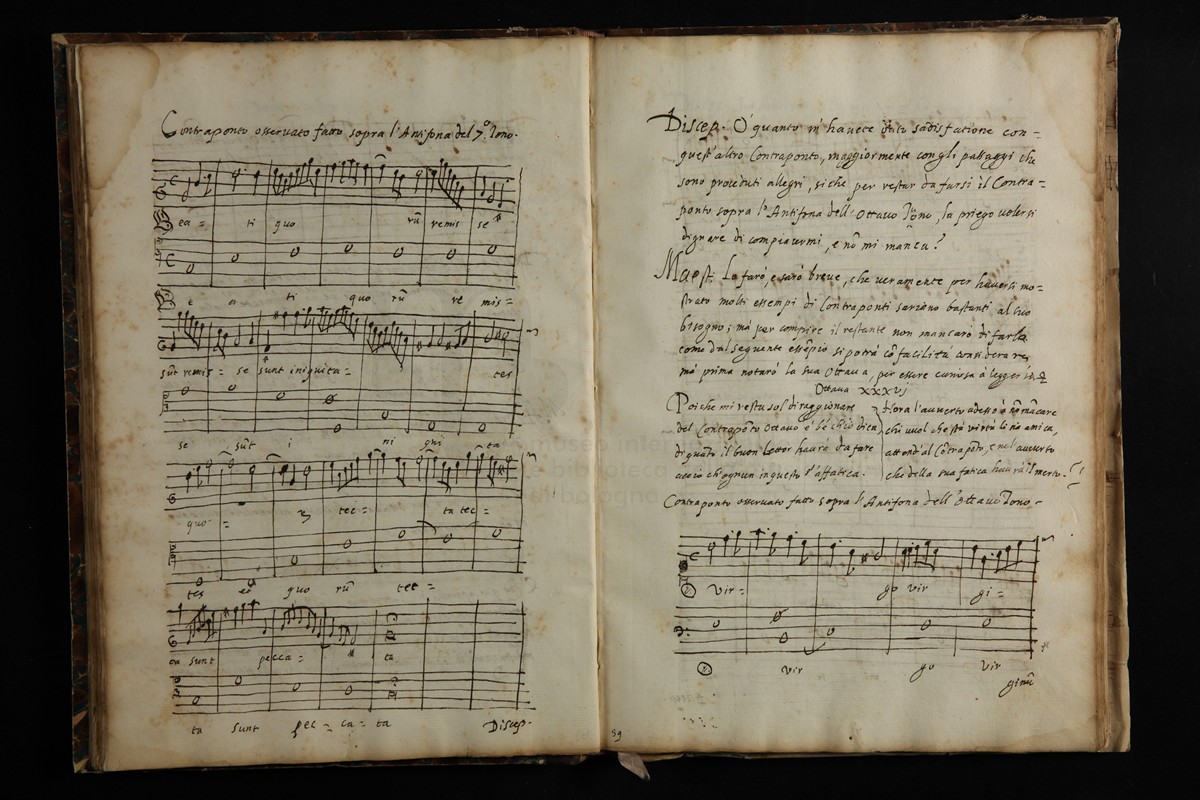 Contraponto osservato fatto sopra l'Antifona del 7.º Tono.
ea = ti quo rū remis se
e a ti quo rū re mis =
sūt remis = se sunt iniquita = tes
se sūt i ni qui ta
quo = tec = ta tec =
tes et quo rū tec =
ta sunt pecca = ta
ta sunt pec = ca = ta Discep.
Discep. O quanto m'havete dato sadisfatione con =
quest'altro Contraponto, maggiormente con gli passaggi che
sono proceduti allegri, si che per restar da farsi il Contra =
ponto sopra l'Antifona dell'Ottavo Tōno, la priego volersi
dignare di compiacermi, e nō mi manca?
Maest. Lo farò, e sarò breve, che veramente per haversi mo =
strato molti essempi di Contraponti sariano bastanti al suo
bisogno; mà per compire il restante non mancarò di farlo
como dal seguente essēpio si potrà cō facilità considerare,
mà prima notarò la sua Ottava, per essere curiosa à legger
Ottava XXXVJ
Poiche mi resta sol di raggionare
del Contrapōto Ottavo è bē ch'io dica
di quāto il buon lettor haurà da fare
acciò ch'ognun in questo s'affatica.
Hora l'avverto adesso à nō mācare
chi vuol che stà virtù li sia amica,
attend'al Cōtrapōto, e nel
che della sua fatica haurà il merto.
Contraponto osservato fatto sopra l'Antifona dell'Ottavo Tono.
Vir = go vir gi =
vir go vir
ginū
59
museo inter
e biblioteca
di bologna